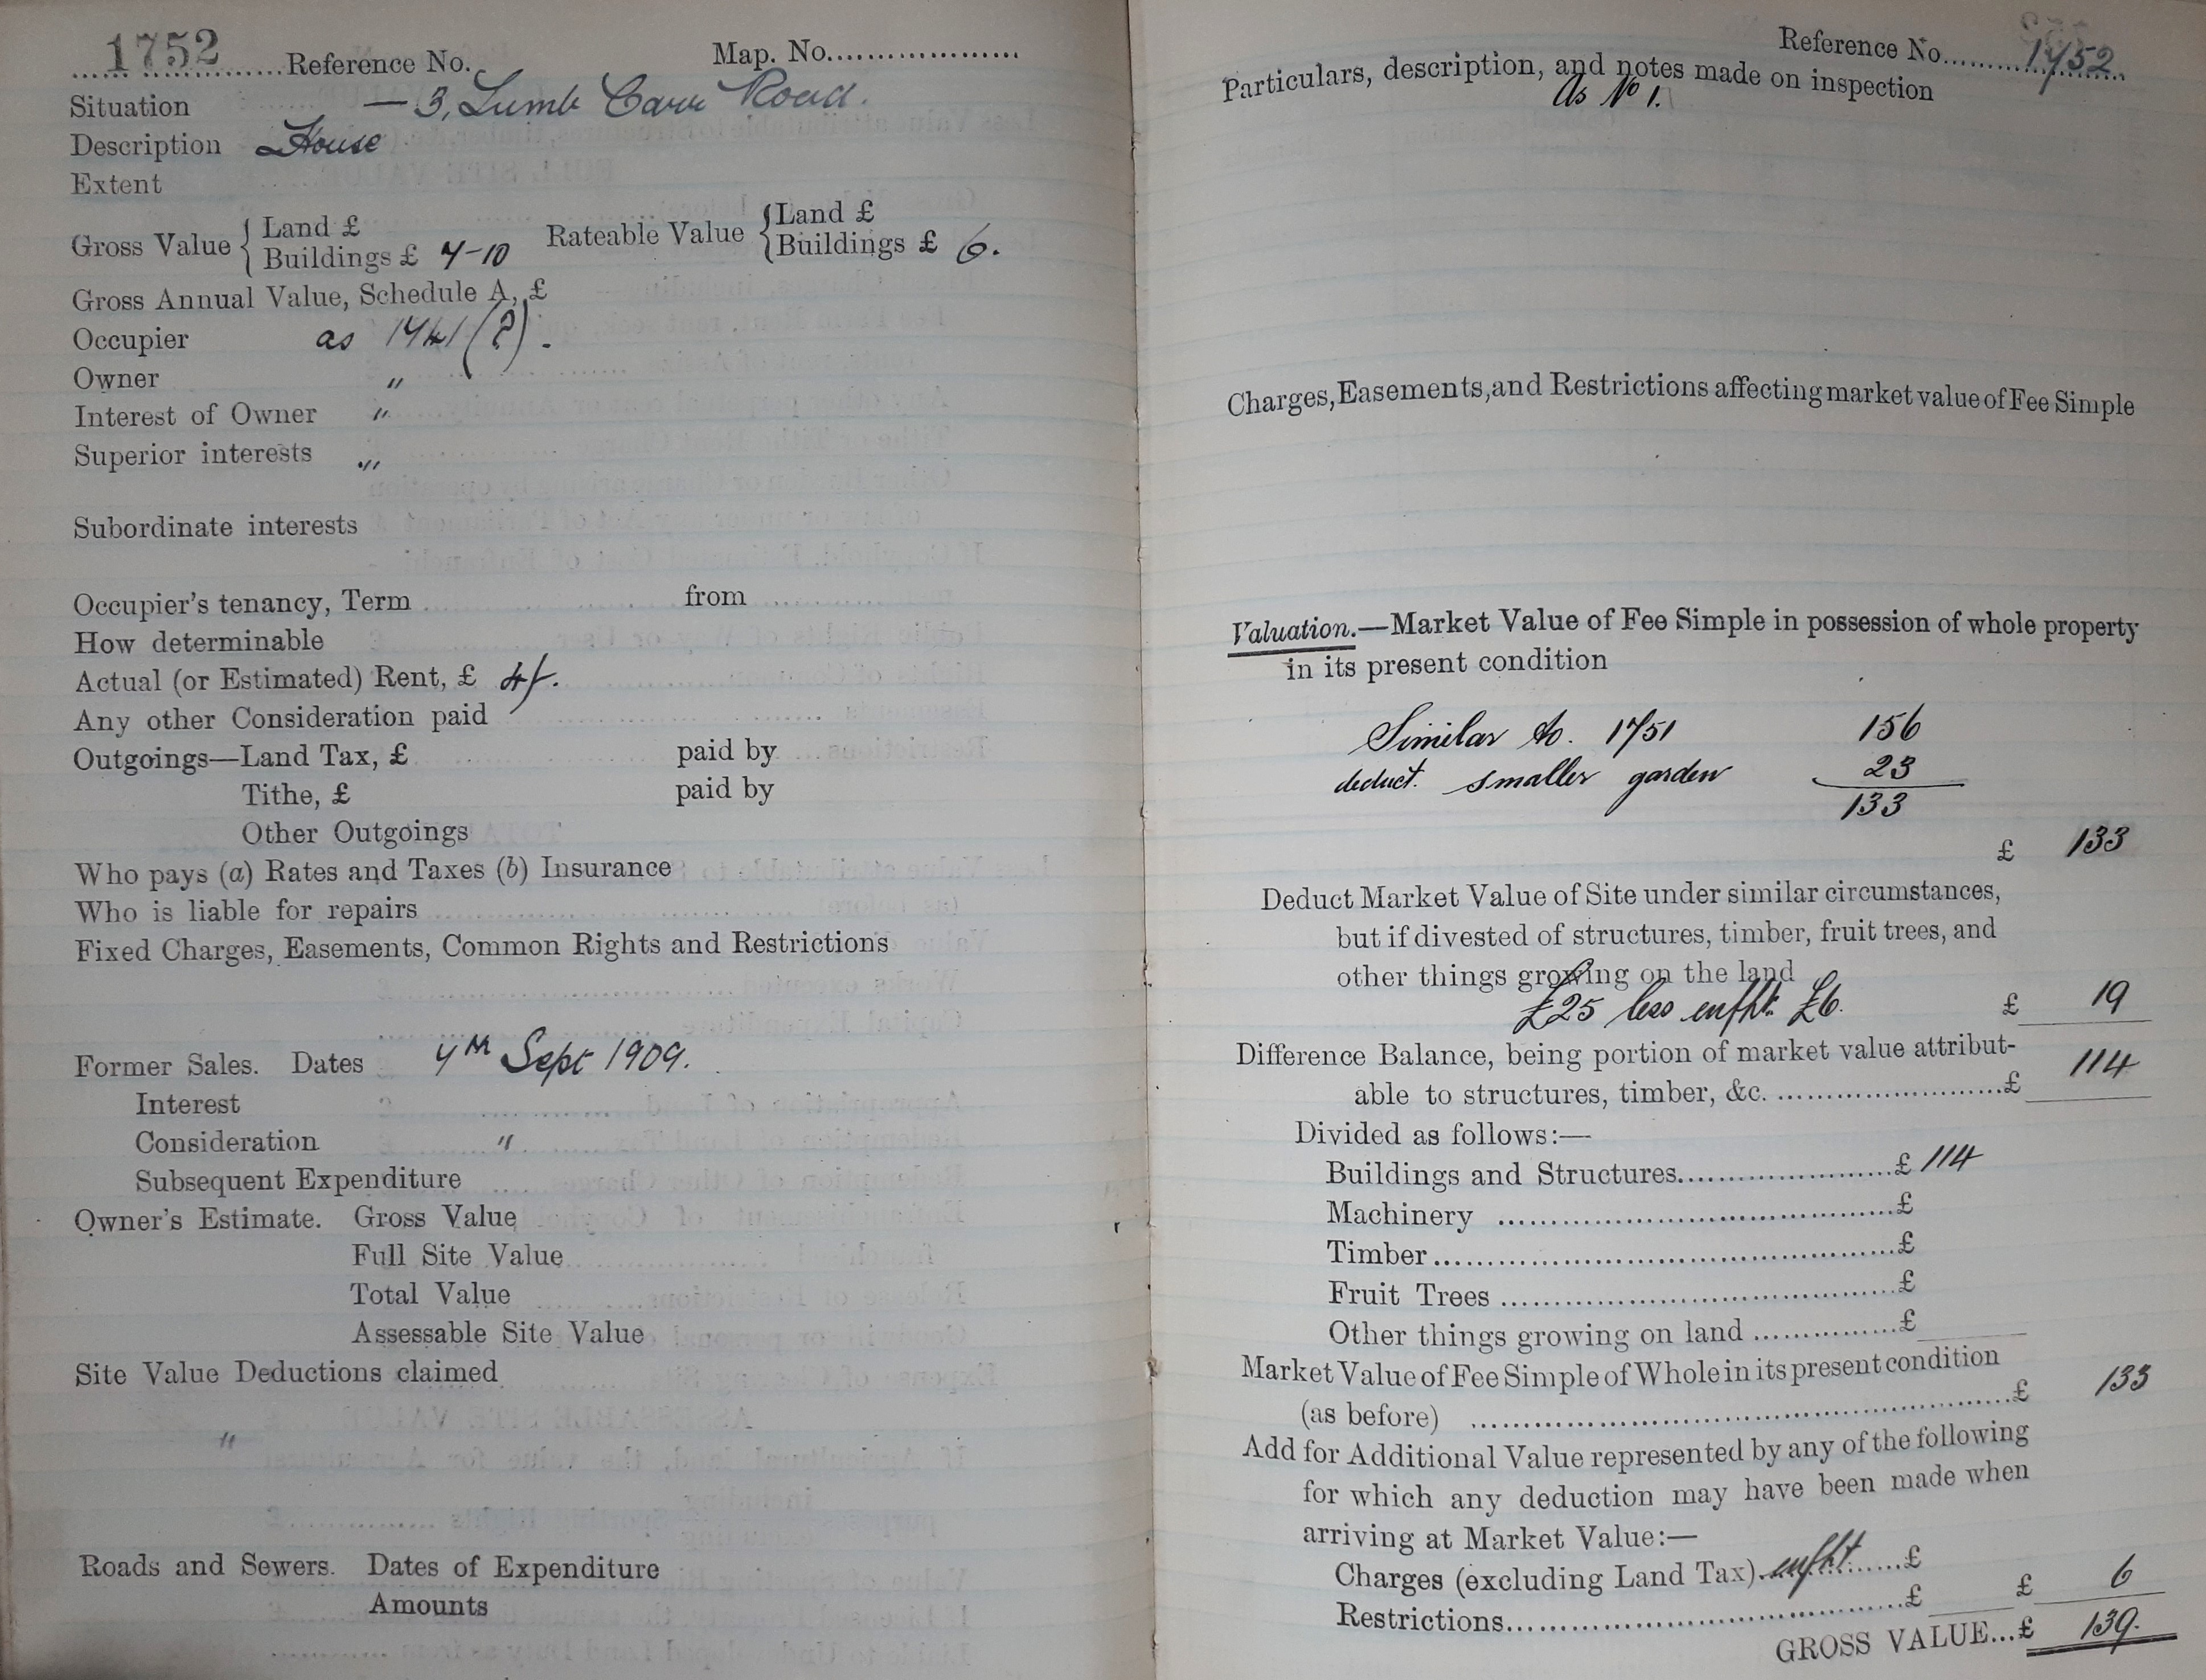 1752 Reference No. Map. No.
Situation — 3, Lumb Carr Road.
Description House
Extent
Gross Value { Land £
Buildings £ 7-10
Rateable Value { Land £
Buildings £ 6.
Gross Annual Value, Schedule A, £
Occupier as 1741 (?).
Owner "
Interest of Owner "
Superior interests "
Subordinate interests
Occupier's tenancy, Term from
How determinable
Actual (or Estimated) Rent, £ 4/.
Any other Consideration paid
Outgoings—Land Tax, £ paid by
Tithe, £ paid by
Other Outgoings
Who pays (a) Rates and Taxes (b) Insurance
Who is liable for repairs
Fixed Charges, Easements, Common Rights and Restrictions
Former Sales. Dates 7th Sept 1909.
Interest
Consideration "
Subsequent Expenditure
Owner's Estimate. Gross Value
Full Site Value
Total Value
Assessable Site Value
Site Value Deductions claimed
"
Roads and Sewers. Dates of Expenditure
Amounts
Reference No. 1752
Particulars, description, and notes made on inspection
As No 1.
Charges, Easements, and Restrictions affecting market value of Fee Simple
Valuation.—Market Value of Fee Simple in possession of whole property
in its present condition
Similar to. 1751 156
deduct. smaller garden 23
133
£ 133
Deduct Market Value of Site under similar circumstances,
but if divested of structures, timber, fruit trees, and
other things growing on the land
£25 less enfht. £6. £ 19
Difference Balance, being portion of market value attribut-
able to structures, timber, &c. £ 114
Divided as follows:—
Buildings and Structures £ 114
Machinery £
Timber £
Fruit Trees £
Other things growing on land £
Market Value of Fee Simple of Whole in its present condition
(as before) £ 133
Add for Additional Value represented by any of the following
for which any deduction may have been made when
arriving at Market Value:—
Charges (excluding Land Tax) enfht £
Restrictions £ £ 6
GROSS VALUE...£ 139.